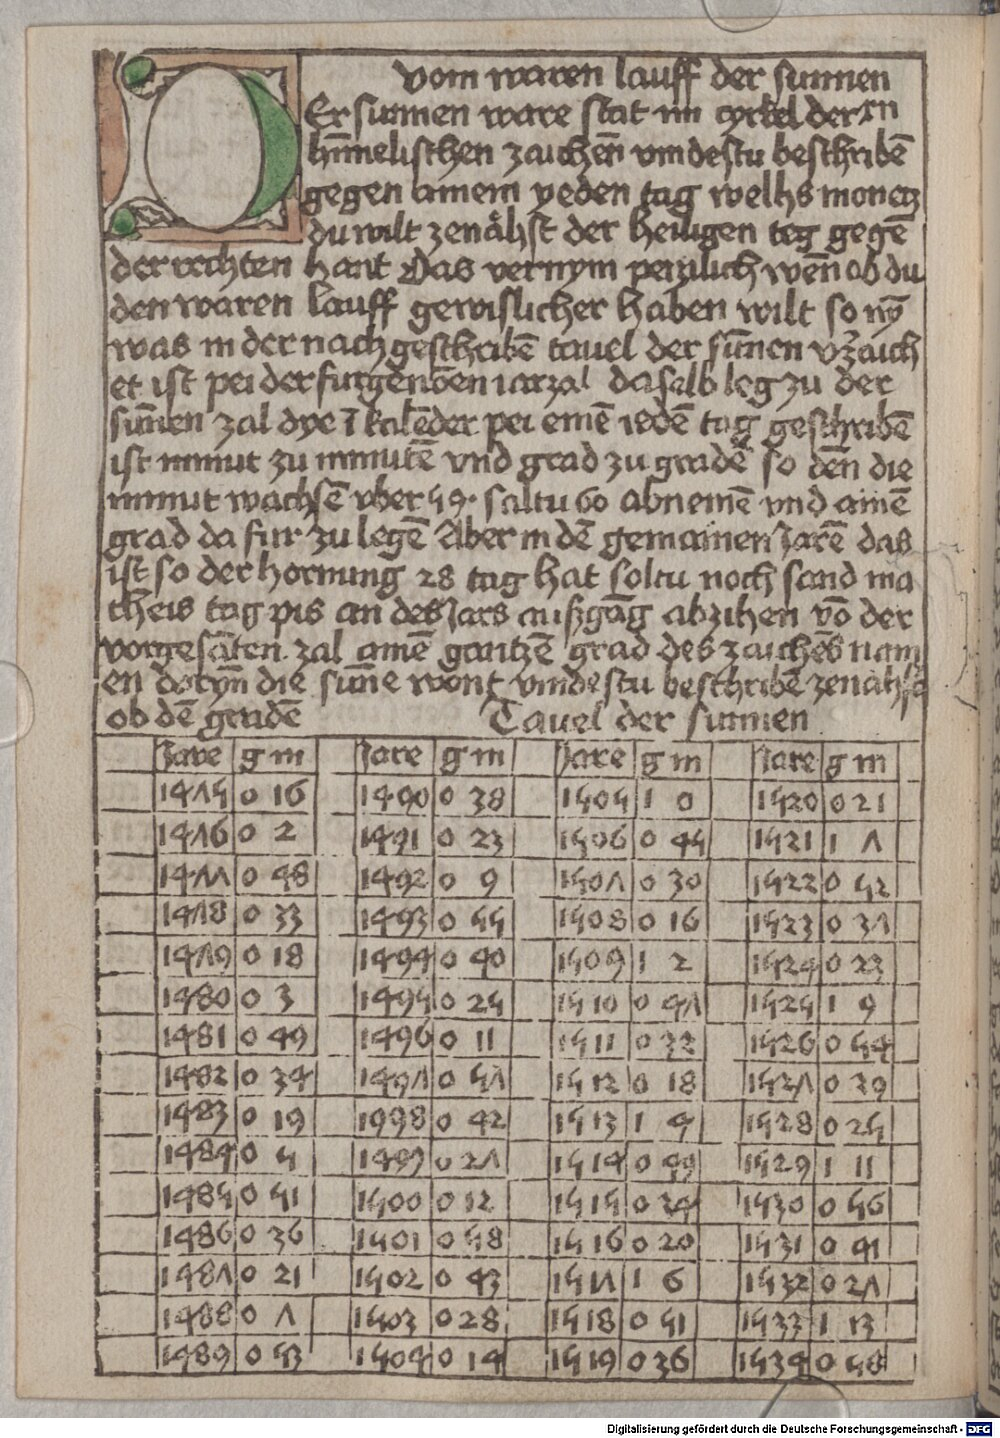 vom waren lauff der sunnen
Er sunnen ware stat im cyrkel der xn
himelischen zaichen vindestu beschribē
gegen ainem yeden tag welhs monetz
du wilt zenähst der heiligen tag gegē
der rechten hant Das vernym
den waren lauff gewislicher haben wilt so nȳ
was in der nach geschribē tauel der sūnen vʼzaich
et ist pei der furgenōen iarzal daselb leg zu der
sūnen zal dye ī kalēder pei einē iedē tag geschribē
ist minut zu minutē vnd grad zu gradē so dēn die
minut wachsē vber 59 · saltu 60 abnemē vnd ainē
grad da fur zu legē Aber in dē gemainen Jarē das
ist so der hornung 28 tag hat soltu noch sand ma
theis tag pis an des Jars außgāg abzihen vō der
vorgesāten zal ainē gantzē grad des zaichēs nam
en darȳn die sūne wont vindestu beschribē zenähst
ob dē gradē Tauel der sunnen
Jare g m Jare g m Jare g m Jare g m
1475 0 16 1490 0 38 1505 1 0 1520 0 21
1476 0 2 1491 0 23 1506 0 45 1521 1 7
1477 0 48 1492 0 9 1507 0 30 1522 0 52
1478 0 33 1493 0 55 1508 0 16 1523 0 37
1479 0 18 1494 0 40 1509 1 2 1524 0 23
1480 0 3 1495 0 25 1510 0 47 1525 1 9
1481 0 49 1496 0 11 1511 0 32 1526 0 54
1482 0 34 1497 0 57 1512 0 18 1527 0 39
1483 0 19 1498 0 42 1513 1 4 1528 0 25
1484 0 5 1499 0 27 1514 0 49 1529 1 11
1485 0 51 1500 0 12 1515 0 34 1530 0 56
1486 0 36 1501 0 58 1516 0 20 1531 0 41
1487 0 21 1502 0 43 1517 1 6 1532 0 27
1488 0 7 1503 0 28 1518 0 51 1533 1 13
1489 0 53 1504 0 14 1519 0 36 1534 0 58
Digitalisierung gefördert durch die Deutsche Forschungsgemeinschaft - DFG